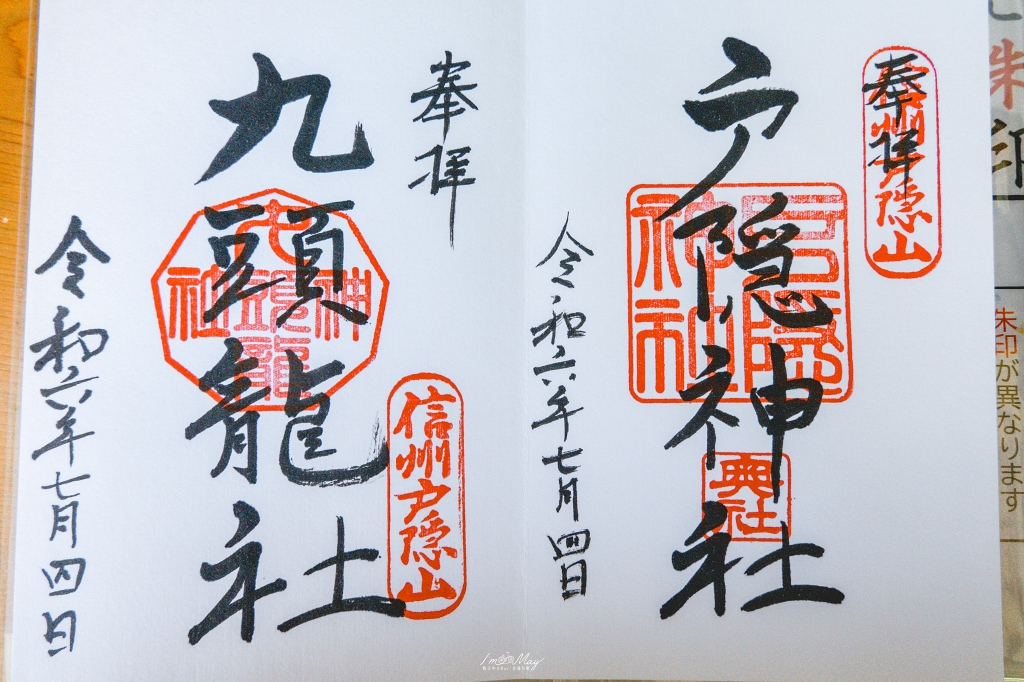 奉拝
信州戸隠山
戸隠神社
戸隠
神社
奥社
令和六年七月四日
奉拝
九頭龍社
九頭龍
神社
信州戸隠山
令和六年七月四日
朱印
朱印が異なります
I'm May